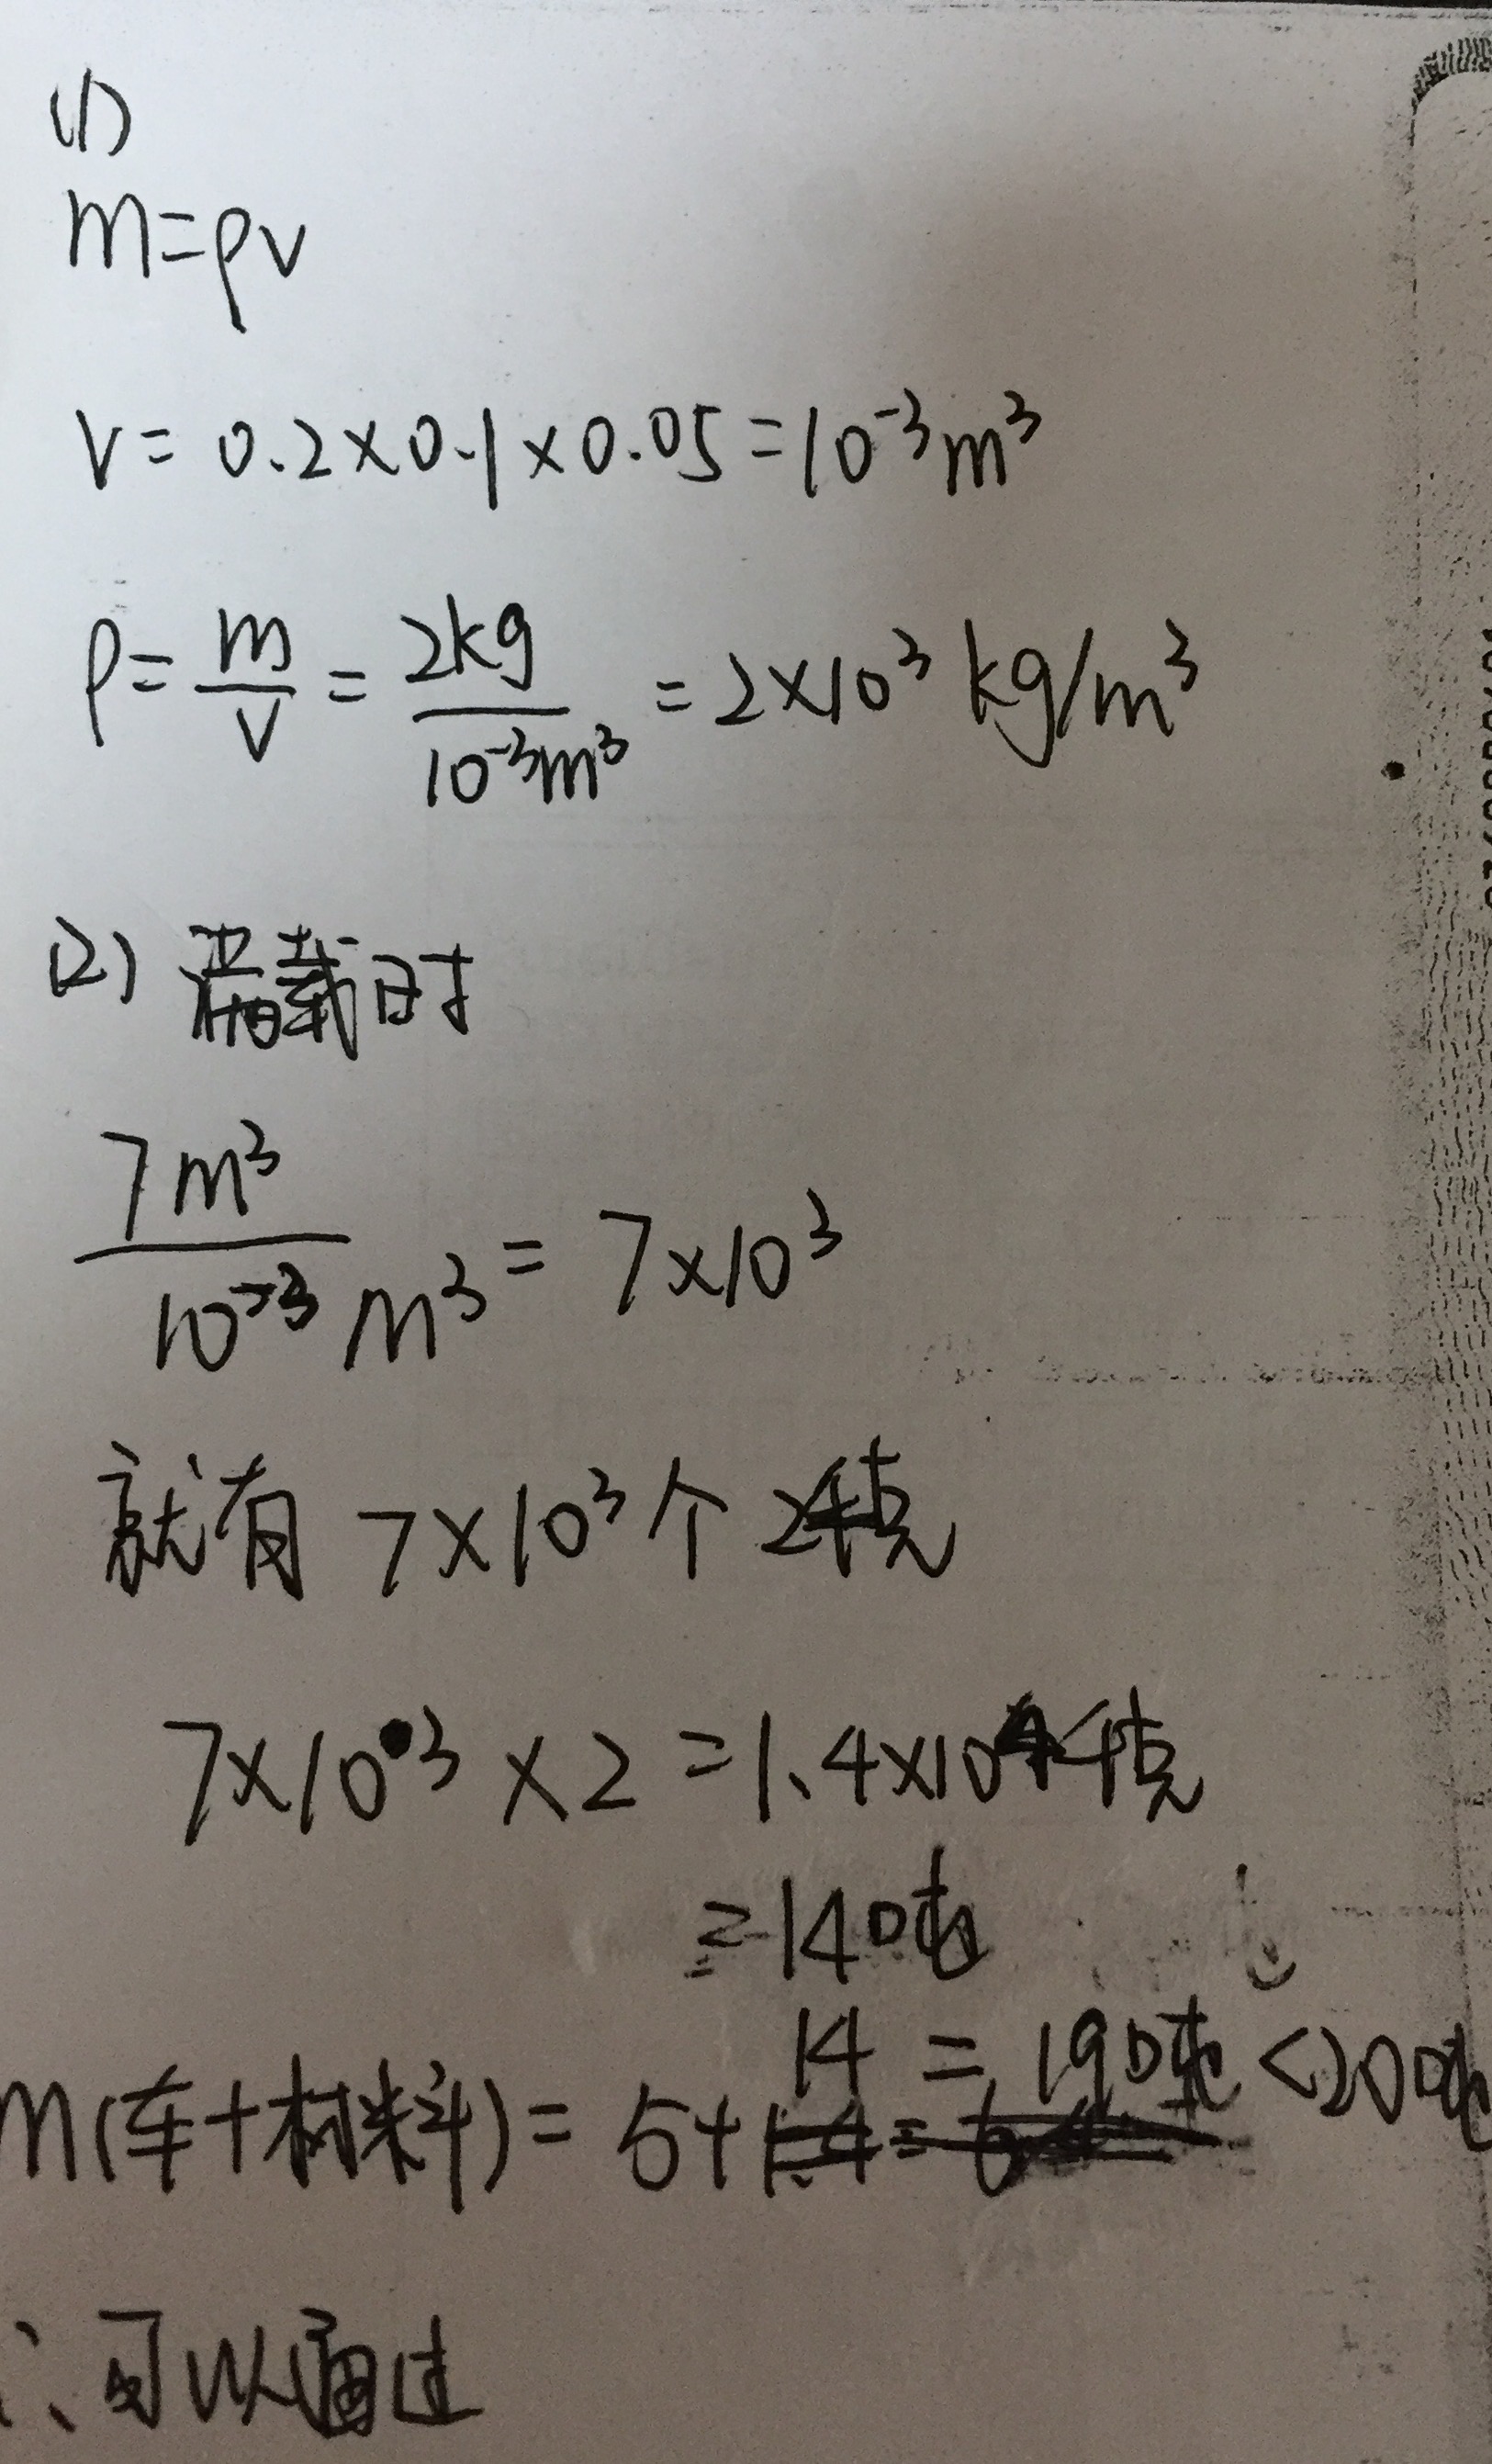 (1)
m=ρv
V=0.2×0.1×0.05=10⁻³m³
ρ=m/V=2kg/10⁻³m³=2×10³kg/m³
(2)满载时
7m³/10⁻³m³=7×10³
就有7×10³个2千克
7×10³×2=1.4×10⁴千克
=14吨
m(车+材料)=5+14=19吨<20吨
∴可以通过